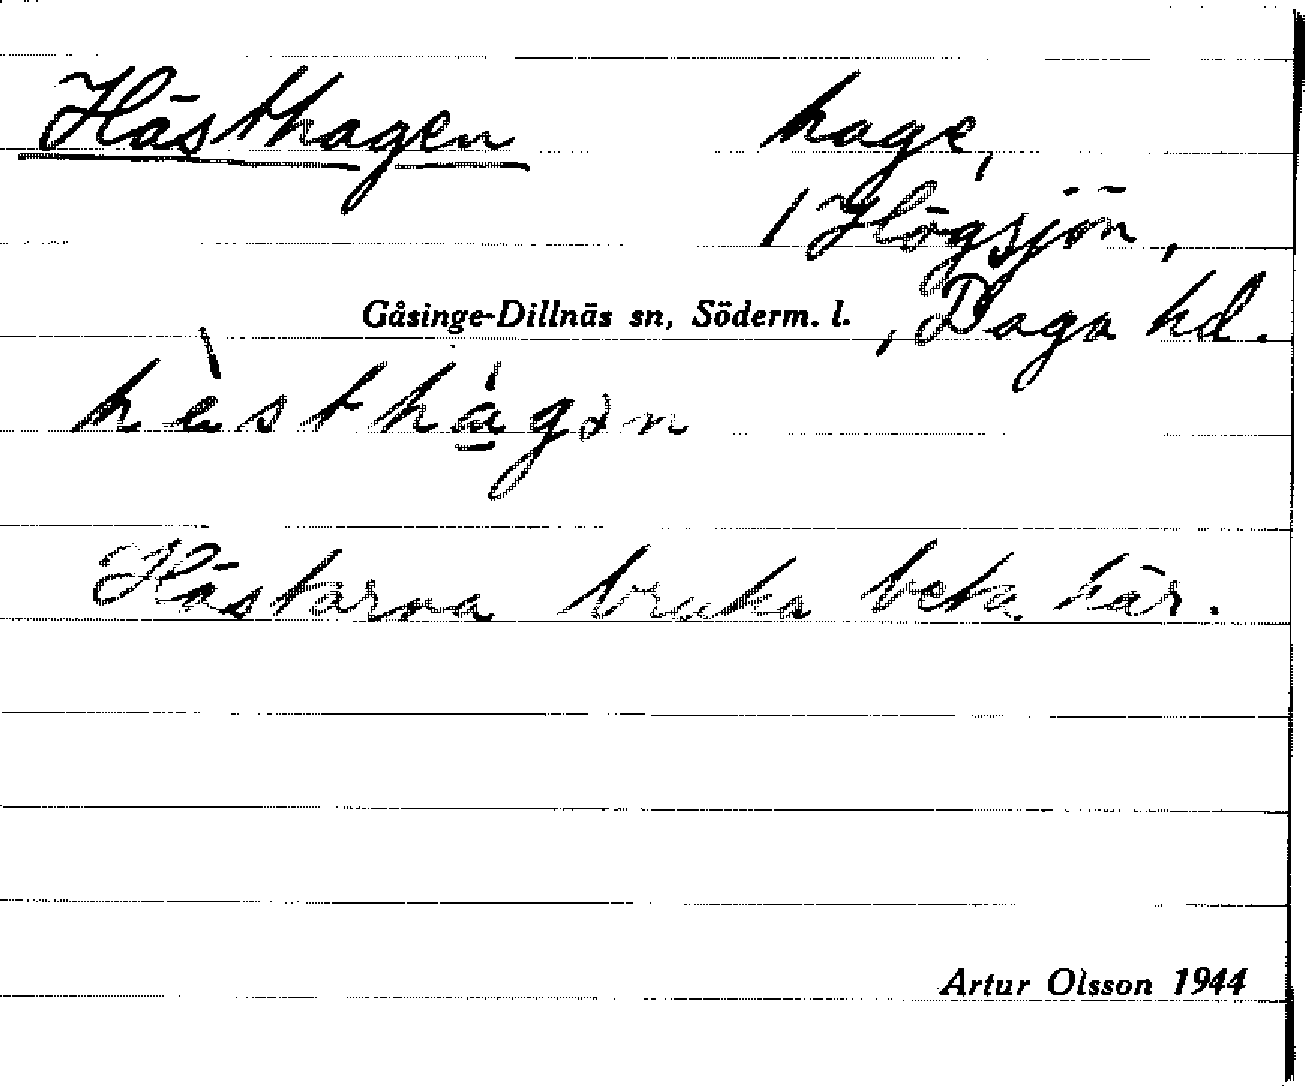 Hästhagen hage,
/ Högsjön,
Gåsinge-Dillnäs sn, Söderm. l. , Daga hd.
hὲsthágən
Hästarna bruka beta här.
Artur Olsson 1944